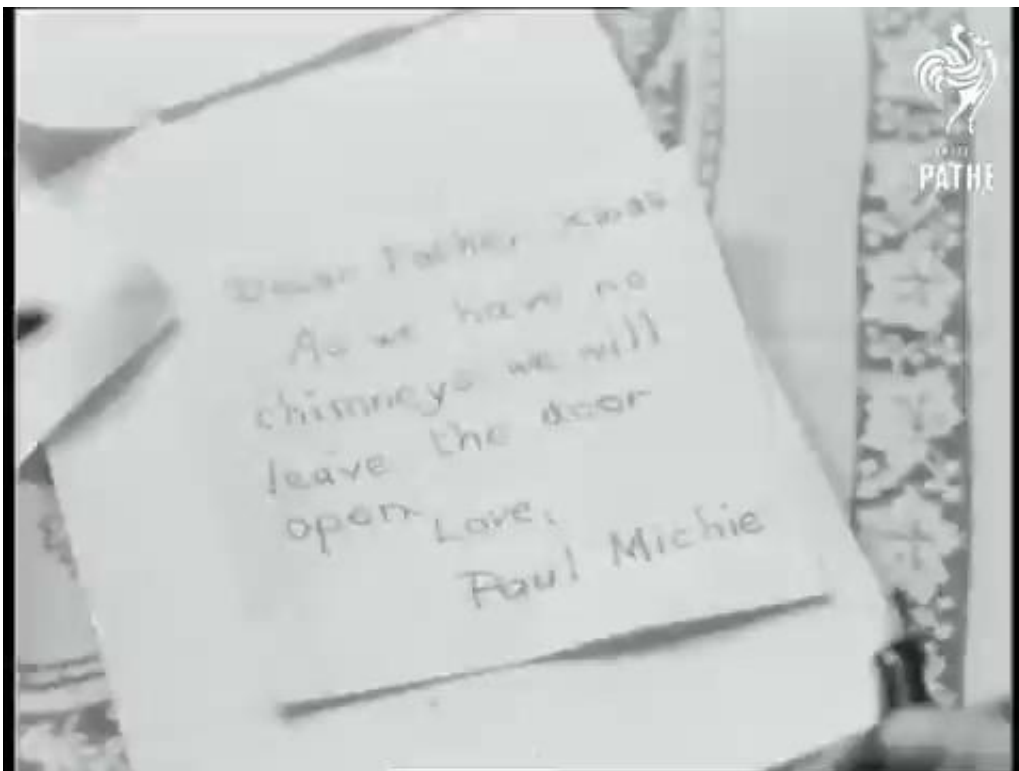 Dear Father Xmas
As we have no
chimneys we will
leave the door
open
Love,
Paul Michie
PATHE